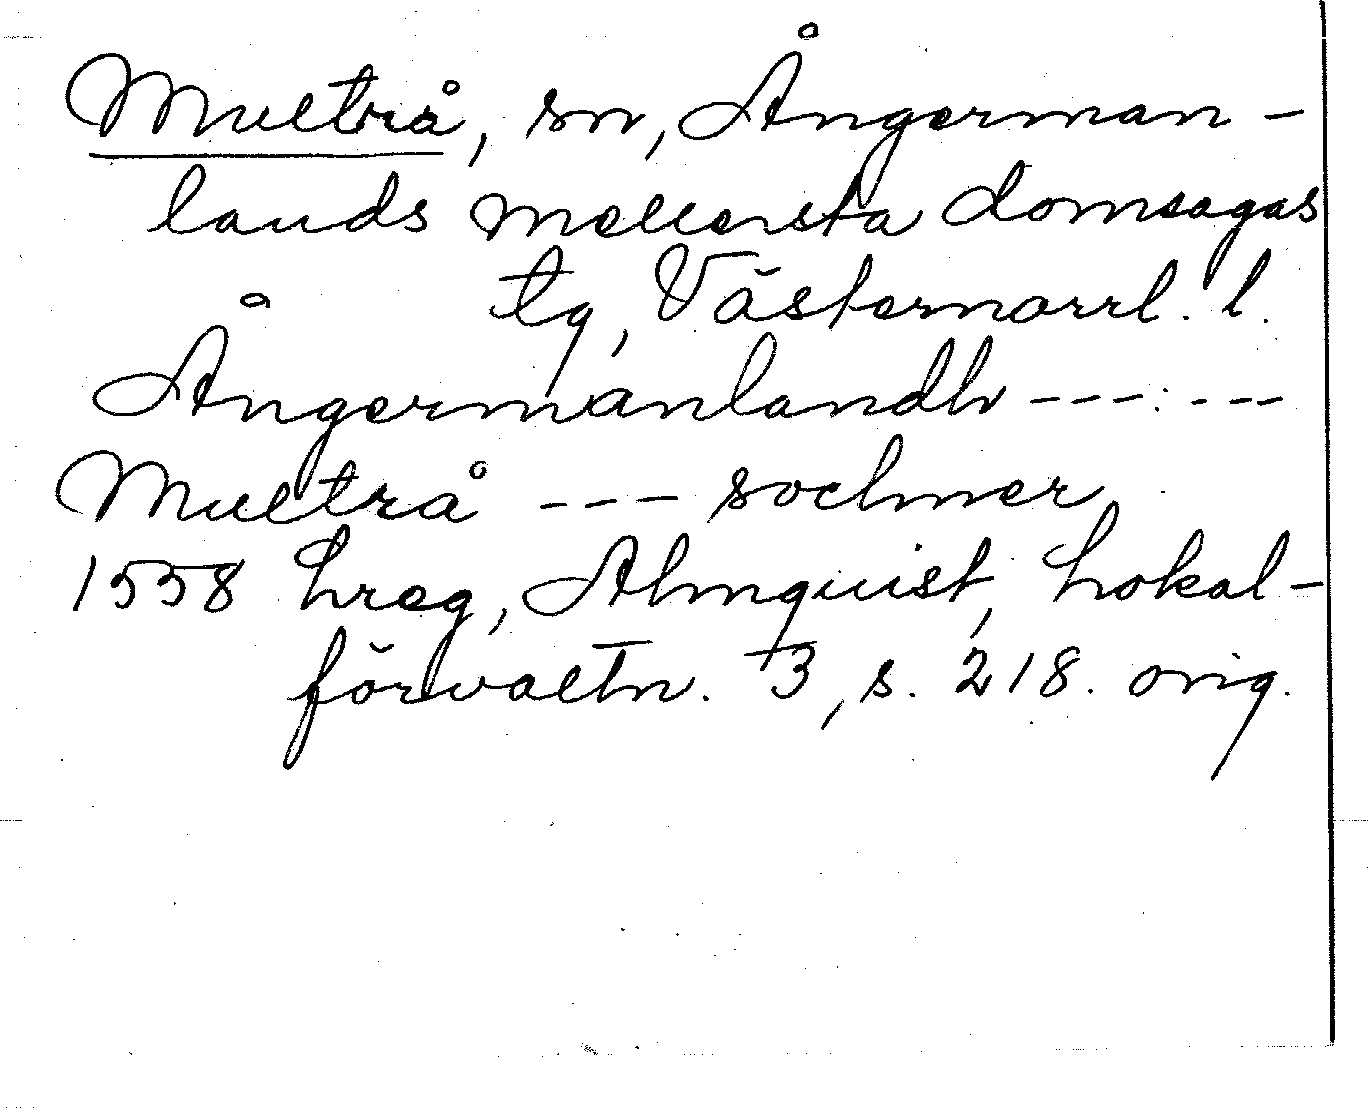 Multrå, sn, Ångerman-
lands mellersta domsagas
tg, Västernorrl. l.
Ångermanlandh --- ---
Multrå --- sochner
1558 hreg, Almquist, Lokal-
förvaltn. 3, s. 218. orig.